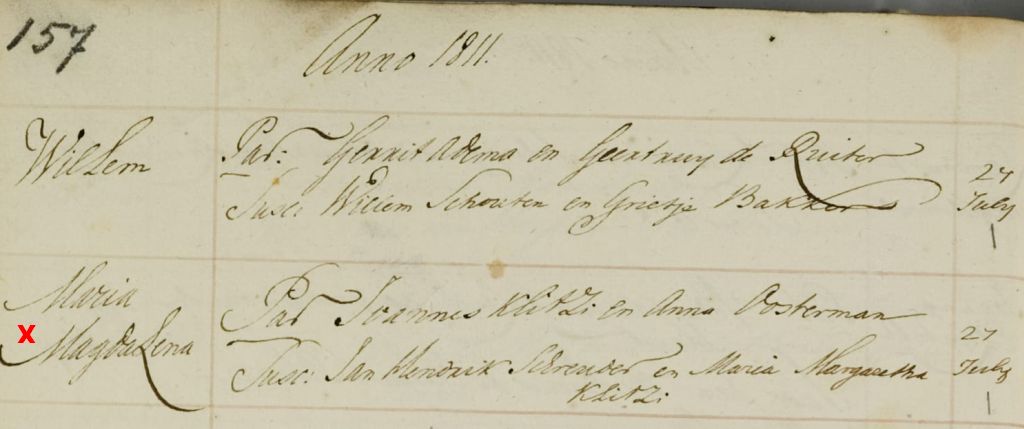 157
Anno 1811.
Willem
Par: Gerrit Adema en Geertruy de Ruiter
Susc: Willem Schouten en Grietje Bakker
27
July
1
Maria
X Magdalena
Par Joannes Klitzi en Anna Oosterman
Susc: Jan Hendrik Schreuder en Maria Margaretha
Klitzi
27
July
1